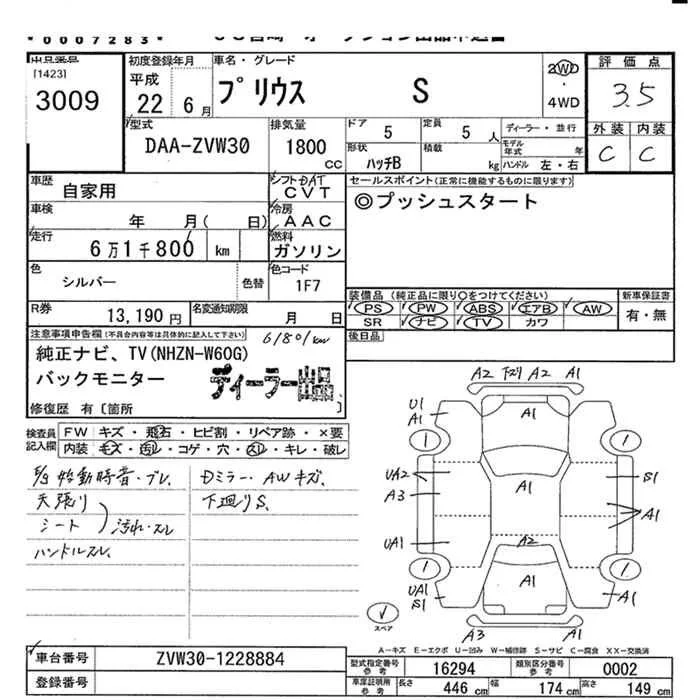 *0007283*
[1423]
3009
初度登録年月
平成
22 6月
車名・グレード
プリウス S
2WD
・
4WD
評価点
3.5
外装 内装
C C
型式
DAA-ZVW30
排気量
1800
CC
ドア 5
定員 5 人
形状 ハッチB
積載 kg
ディーラー・並行
モデル年式 年
ハンドル 左・右
車歴
自家用
シフト DAT
CVT
車検
年 月( 日)
冷房
AAC
走行
6万1千800 km
燃料
ガソリン
色
シルバー
色替
色コード
1F7
R券
13,190円
名変通知期限
月 日
セールスポイント(正常に機能するものに限ります)
◎プッシュスタート
装備品 (純正品に限り○をつけてください)
PS PW ABS エアB AW
SR ナビ TV カワ
新車保証書
有・無
後日品
注意事項申告欄(不具合内容等は具体的に記入して下さい)
61801km
純正ナビ、TV(NHZN-W60G)
バックモニター
ディーラー出品
修復歴 有〔箇所 〕
検査員記入欄
FW キズ・飛石・ヒビ割・リペア跡・×要
内装 モズ・汚れ・コゲ・穴・スレ・キレ・破レ
始動時音・ブレ、
天張り
シート
汚れ・スレ
ハンドルスレ、
Dミラー・AWキズ、
下廻りS、
A2 下ズリ A2 A1
U1
A1
A1
1
1
UA2
A3
S1
A1
A1
UA1
A2
1
1
UA1
S1
A1
A1
A3 A1
スペア
A-キズ E-エクボ U-凹み W-補修跡 S-サビ C-腐食 XX-交換済
車台番号
ZVW30-1228884
登録番号
型式指定番号
参考
16294
類別区分番号
参考
0002
車庫証明用
参考
長さ 446 cm
幅 174 cm
高さ 149 cm